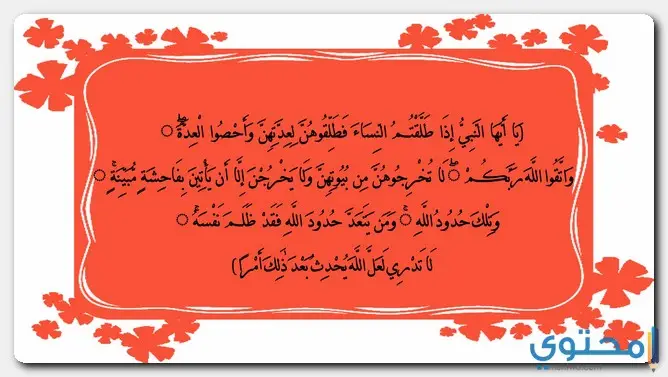 (يَا أَيُّهَا النَّبِيُّ إِذَا طَلَّقْتُمُ النِّسَاءَ فَطَلِّقُوهُنَّ لِعِدَّتِهِنَّ وَأَحْصُوا الْعِدَّةَ ۖ
وَاتَّقُوا اللَّهَ رَبَّكُمْ ۖ لَا تُخْرِجُوهُنَّ مِن بُيُوتِهِنَّ وَلَا يَخْرُجْنَ إِلَّا أَن يَأْتِينَ بِفَاحِشَةٍ مُّبَيِّنَةٍ ۚ
وَتِلْكَ حُدُودُ اللَّهِ ۚ وَمَن يَتَعَدَّ حُدُودَ اللَّهِ فَقَدْ ظَلَمَ نَفْسَهُ ۚ
لَا تَدْرِي لَعَلَّ اللَّهَ يُحْدِثُ بَعْدَ ذَٰلِكَ أَمْرًا)
محتوي